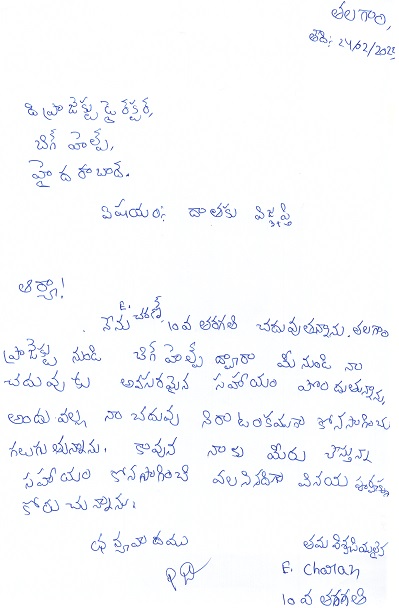 తలగాం,
తేది: 24/02/2025
ది ప్రాజెక్టు డైరెక్టర్,
బిగ్ హెల్ప్,
హైదరాబాద్.
విషయం: దాతకు విజ్ఞప్తి
ఆర్యా!
నేను E. చరణ్ 10వ తరగతి చదువుతున్నాను. తలగాం
ప్రాజెక్టు నుండి బిగ్ హెల్ప్ ద్వారా మీ నుండి నా
చదువుకు అవసరమైన సహాయం పొందుతున్నాను,
అందు వల్ల నా చదువు నిరాటంకముగా కోనసాగించు
గలుగుతున్నాను. కావున నాకు మీరు చేస్తున్న
సహాయం కోనసాగించి వలసినదిగా వినయ పూర్వక
కోరుచున్నాను.
తమ విశ్వసియ్యులైన
E. Charan
10వ తరగతి